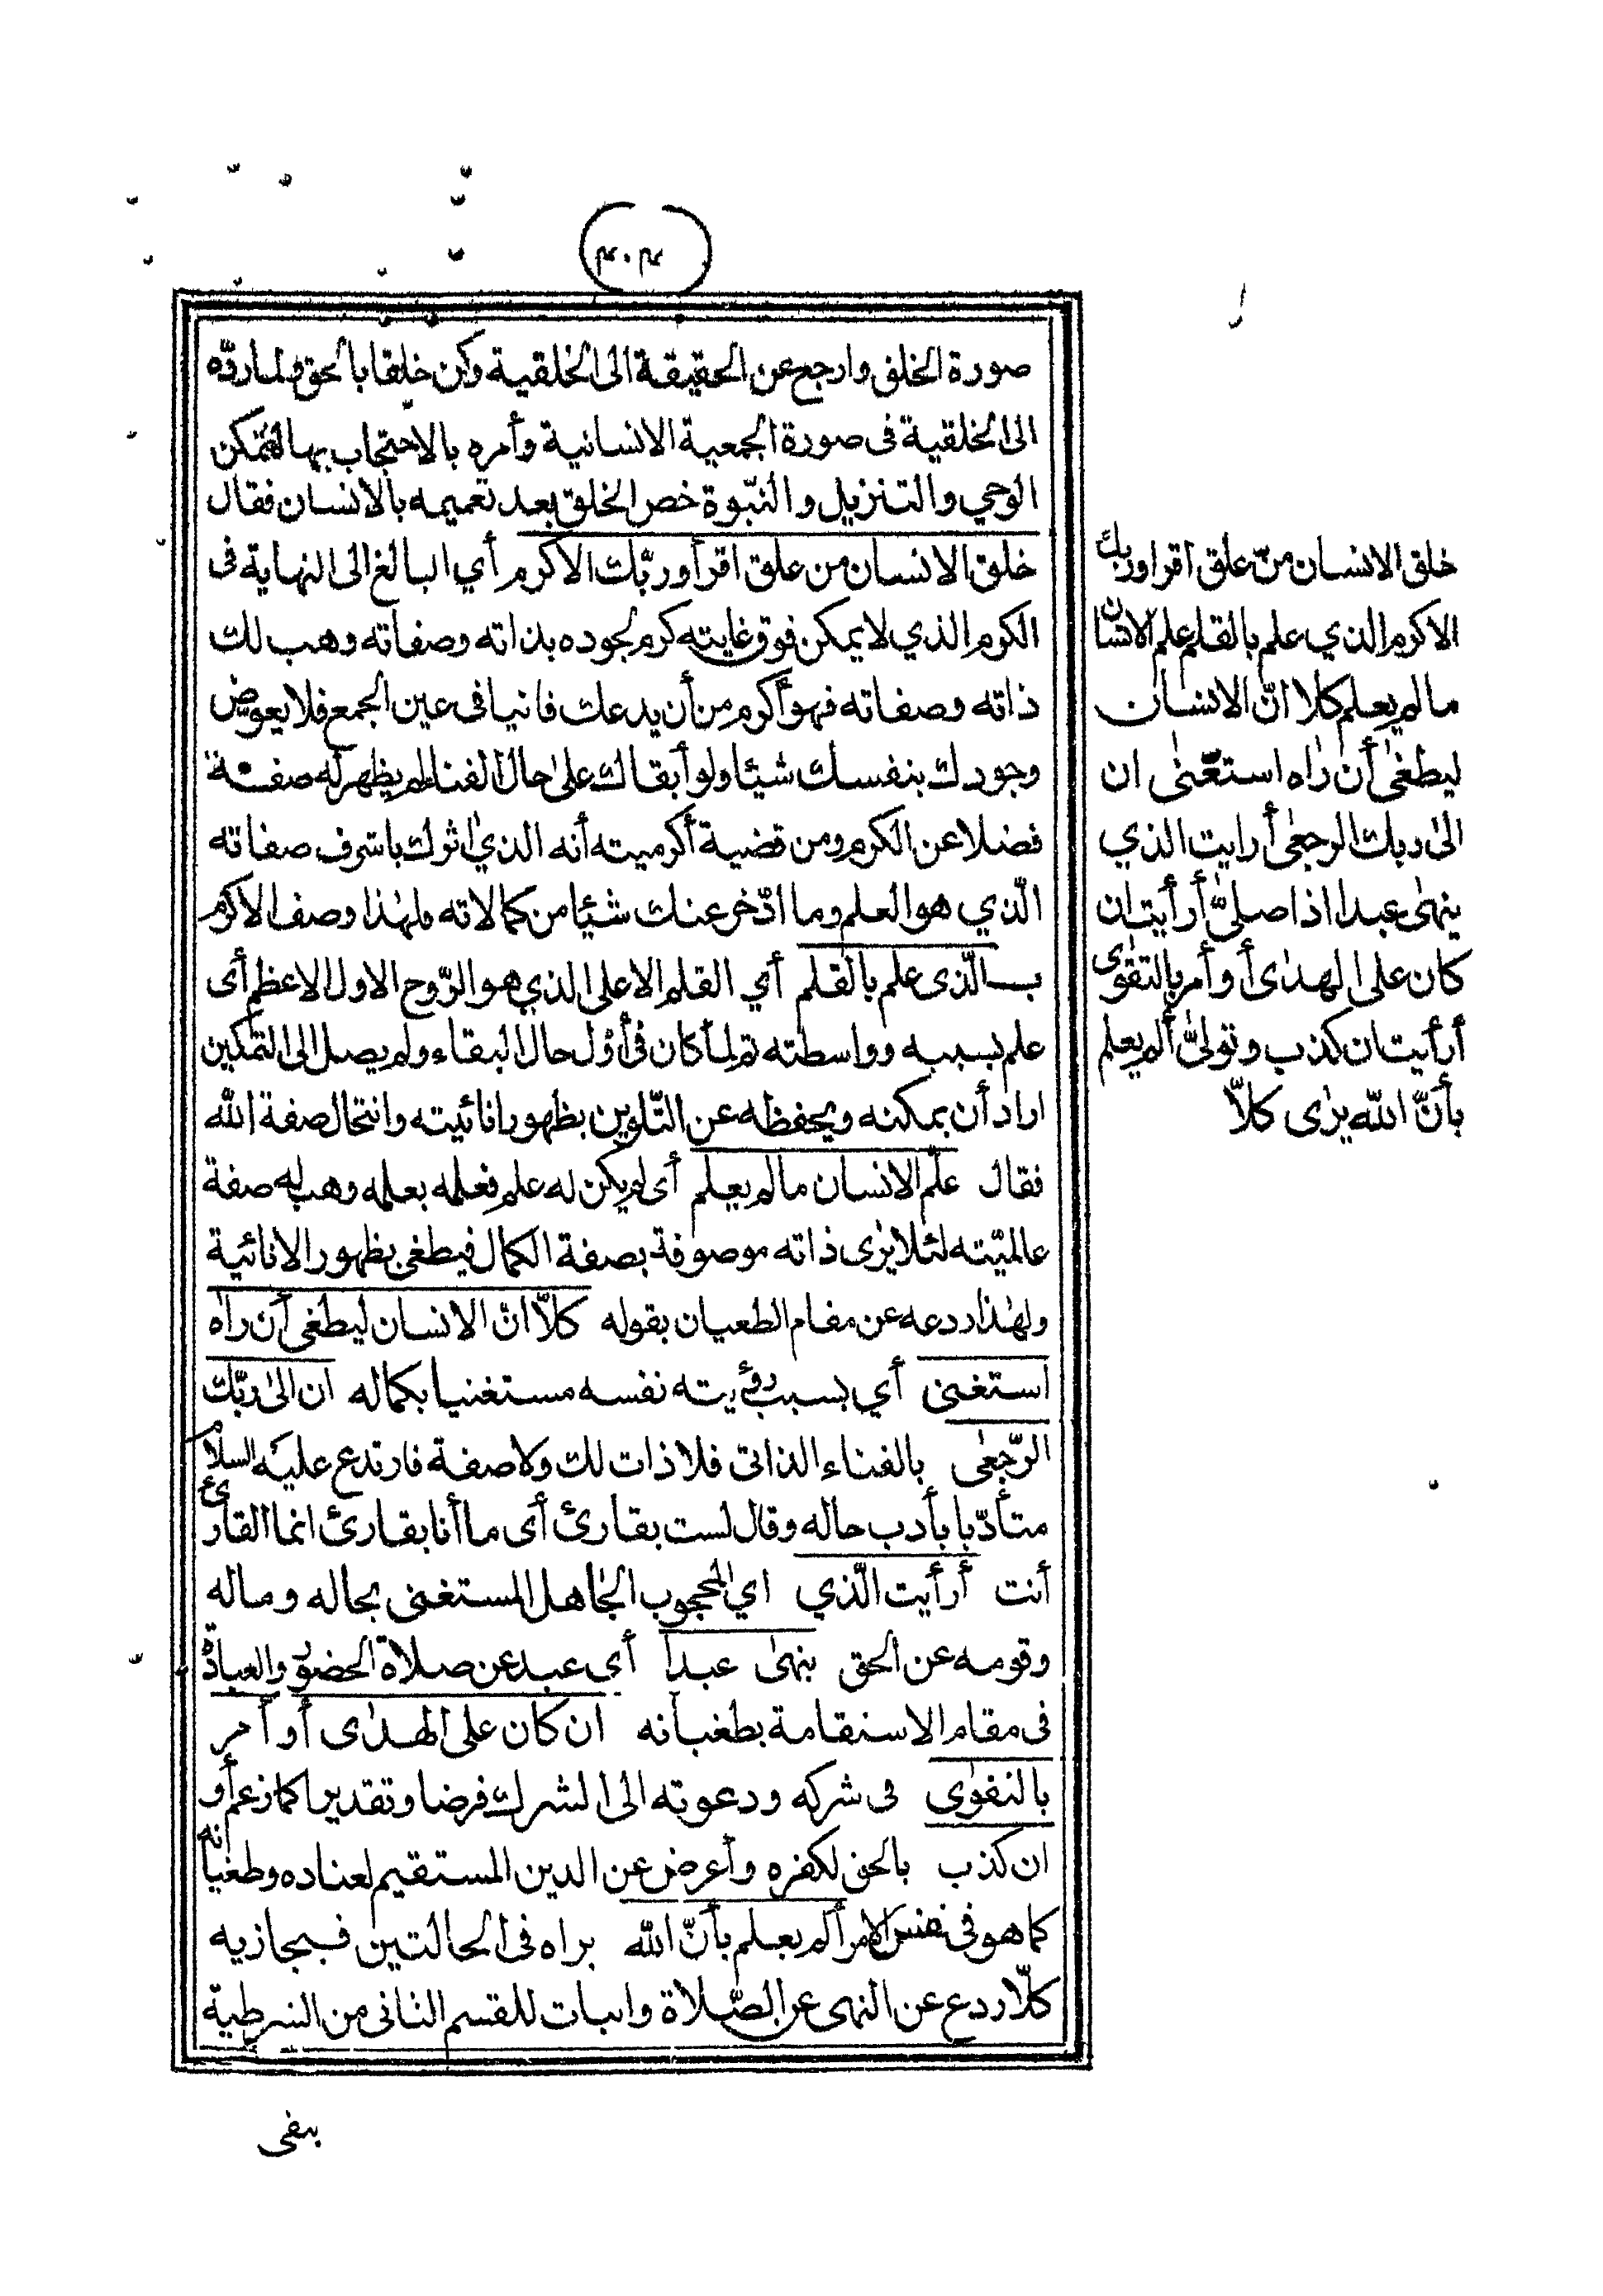 ٤٠٤
صورة الخلق وارجع عن الحقيقة الى الخلقية وكن خلقا بالحق ولما ردّه
الى الخلقية فى صورة الجمعية الانسانية وأمره بالاحتجاب بها لتمكن
الوحي والتنزيل والنبّوة خص الخلق بعد تعميمه بالانسان فقال
خلق الانسان من علق اقرأ وربّك الاكرم أي البالغ الى النهاية فى
الكرم الذي لا يمكن فوق غايته كرم لجوده بذاته وصفاته وهب لك
ذاته وصفاته فهو أكرم من أن يدعك فانيا فى عين الجمع فلا يعوض
وجودك بنفسك شيئا ولو أبقاك على حال الفناء لم يظهر له صفة
فضلا عن الكرم ومن قضية أكرميته أنه الذي اثرك باشرف صفاته
الّذي هو العلم وما ادّخر عنك شيئا من كمالاته ولهٰذا وصف الاكرم
بـالّذى علم بالقلم أي القلم الاعلى الذي هو الرّوح الاول الاعظم أى
علم بسببه وواسطته ثم لما كان فى أوّل حال البقاء ولم يصل الى التمكين
اراد أن يمكنه ويحفظه عن التّلوين بظهور انائيته وانتحال صفة الله
فقال علّم الانسان ما لم يعلم أى لم يكن له علم فعلمه بعلمه وهب له صفة
عالميّته لئلا يرٰى ذاته موصوفة بصفة الكمال فيطغى بظهور الانائية
ولهٰذا ردعه عن مقام الطغيان بقوله كلاّ انّ الانسان ليطغى أن راٰه
استغنى أي بسبب رؤيته نفسه مستغنيا بكماله ان الىٰ ربّك
الرّجعٰى بالفناء الذاتى فلا ذات لك ولا صفة فارتدع عليه السلام
متأدّبا بأدب حاله وقال لست بقارئ أى ما أنا بقارئ انما القارئ
أنت أرأيت الّذي اي المحجوب الجاهل المستغنى بحاله وماله
وقومه عن الحق ينهىٰ عبدا أى عبد عن صلاة الحضور والعبادة
فى مقام الاستقامة بطغيانه ان كان على الهدٰى أو أمر
بالتقوٰى فى شركه ودعوته الى الشرك فرضا وتقديرا كما زعم أو
ان كذب بالحق لكفره وأعرض عن الدين المستقيم لعناده وطغيانه
كما هو فى نفس الامر ألم يعلم بأنّ الله يراه فى الحالتين فيجازيه
كلّا ردع عن النهى عن الصّلاة واثبات للقسم الثانى من الشرطية
بنفى
خلق الانسان من علق اقرا وربك
الاكرم الذي علم بالقلم علم الانسان
ما لم يعلم كلا انّ الانسان
ليطغىٰ أن راٰه استغنىٰ ان
الىٰ ربك الرجعٰى أرايت الذي
ينهىٰ عبدا اذا صلىّٰ أرأيت ان
كان على الهدٰى أو أمر بالتقوٰى
أرأيت ان كذب وتولىّٰ ألم يعلم
بأنّ الله يرٰى كلاّ